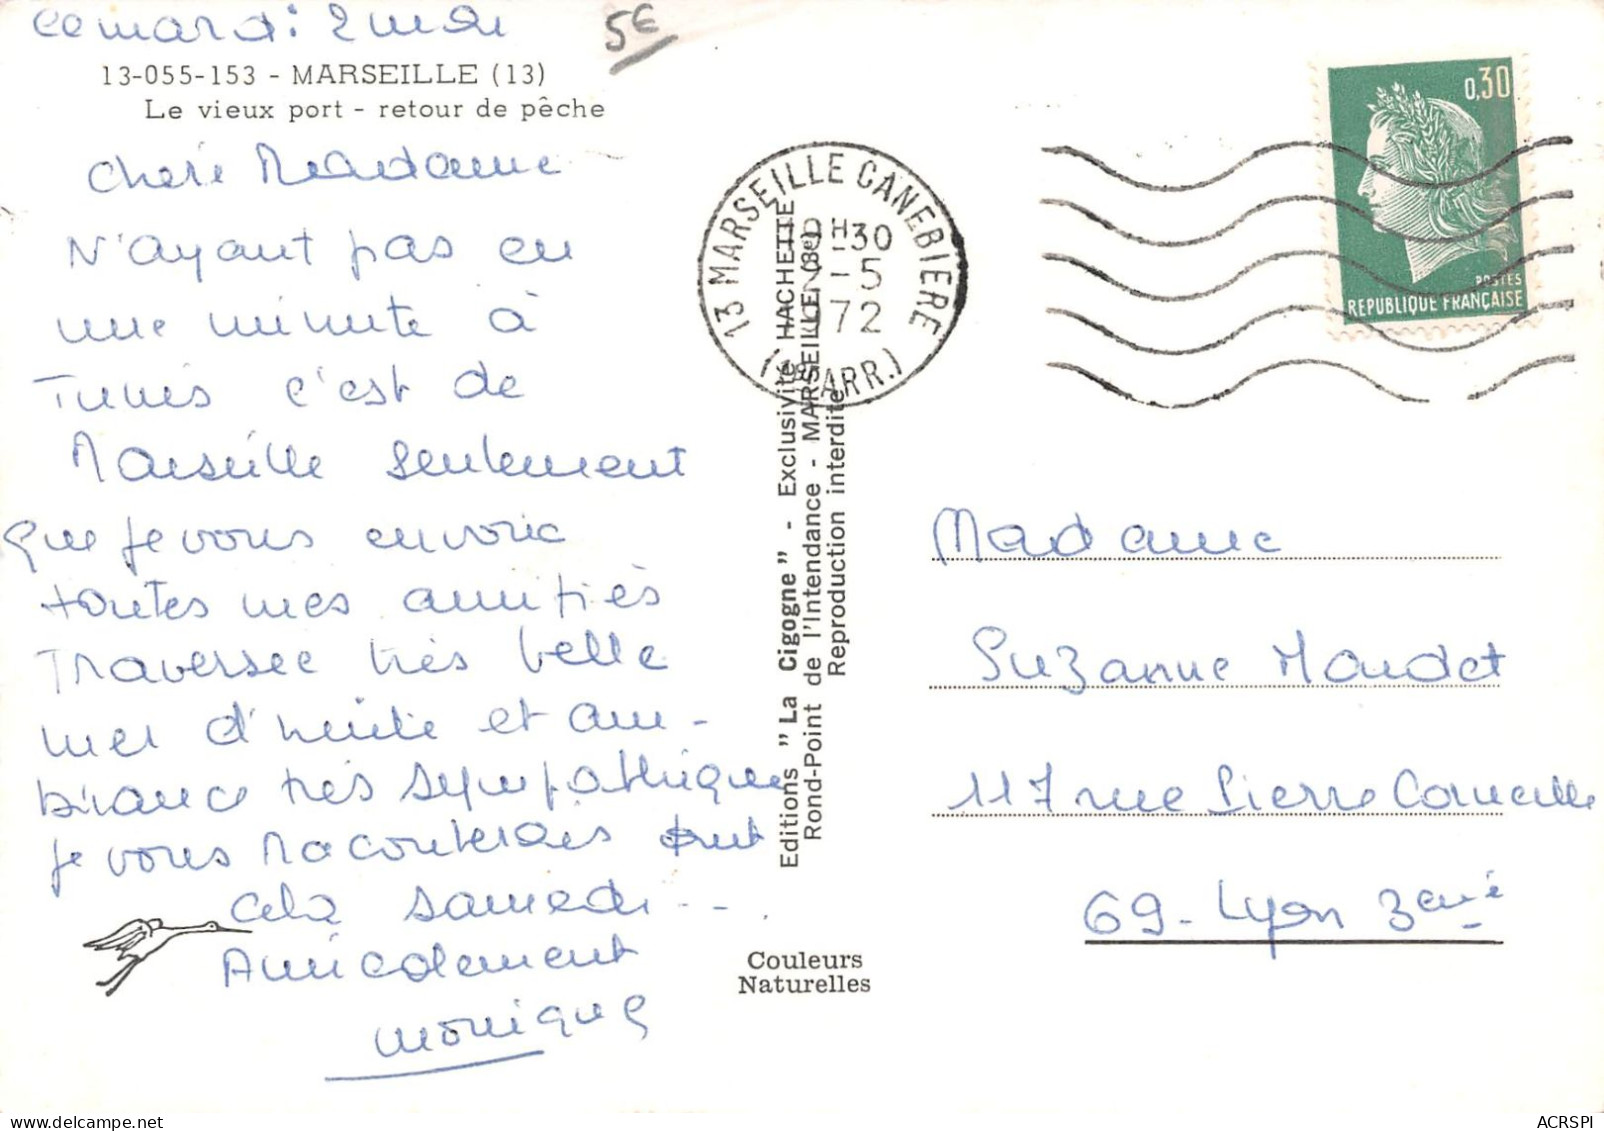 ce mardi 2 mai
5€
13-055-153 - MARSEILLE (13)
Le vieux port - retour de pêche
Chère Madame
N'ayant pas eu
une minute à
Tunis c'est de
Marseille seulement
que je vous envoie
toutes mes amitiés
Traversée très belle
mer d'huile et am-
biance très sympathique
je vous raconterais tout
cela samedi - -
Amicalement
monique
13 MARSEILLE CANEBIERE
H 30
2-5
1972
(1er ARR.)
Editions "La Cigogne" - Exclusivité HACHETTE
Rond-Point de l'Intendance - MARSEILLE (8e)
Reproduction interdite
Couleurs
Naturelles
0,30
POSTES
REPUBLIQUE FRANÇAISE
Madame
Suzanne Maudet
117 rue Pierre Corneille
69 - Lyon 3ème
ACRSPI